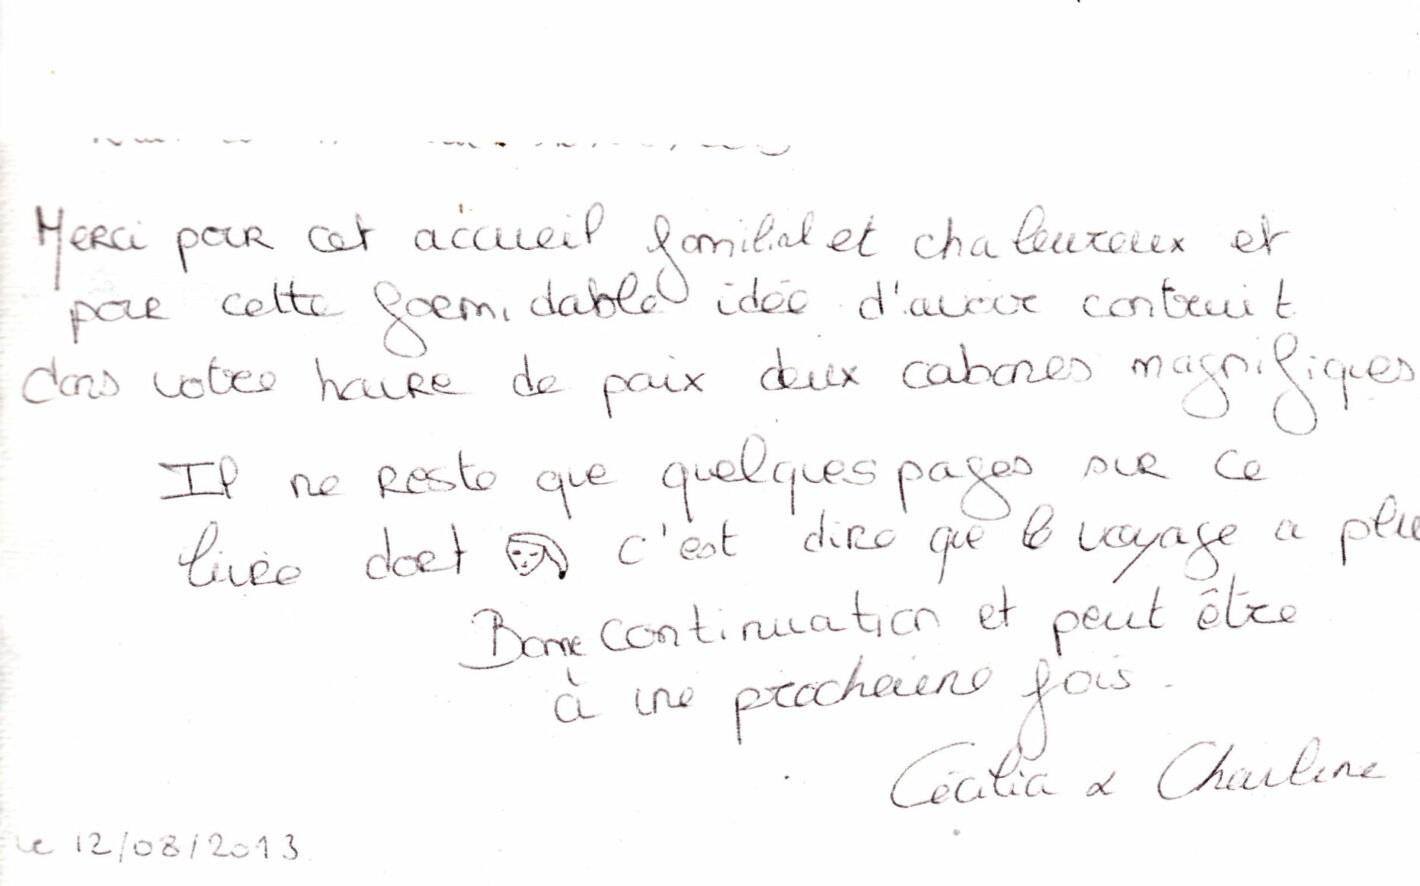 Merci pour cet accueil familial et chaleureux et
pour cette formidable idée d'avoir contruit
dans votre havre de paix deux cabanes magnifiques
Il ne reste que quelques pages sur ce
livre d'or c'est dire que le voyage a plu
Bonne continuation et peut être
à une prochaine fois.
Cécilia & Charline
le 12/08/2013